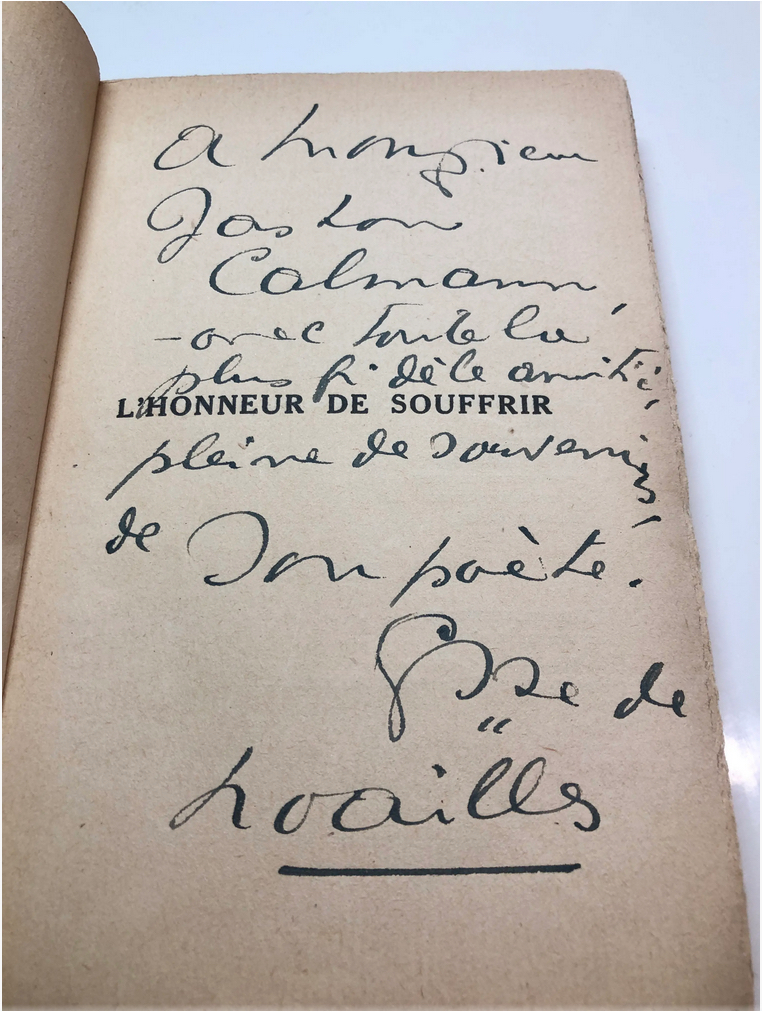 A Monsieur
Gaston
Calmann,
- avec toute la
plus fidèle amitié,
L'HONNEUR DE SOUFFRIR
pleine de souvenirs,
de son poète.
Csse de
Noailles